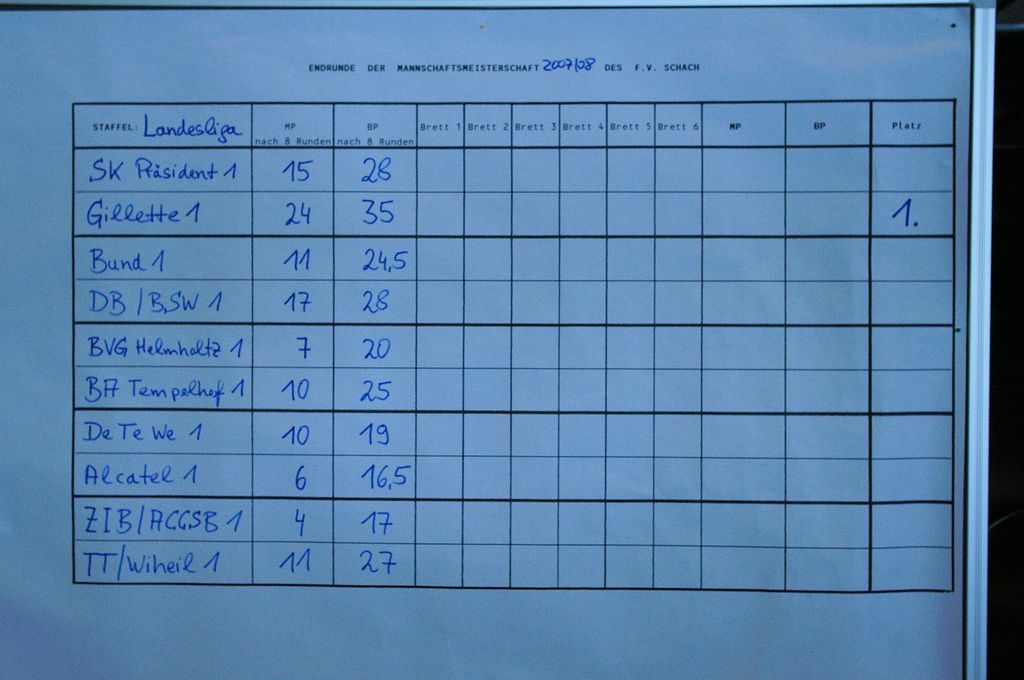 ENDRUNDE DER MANNSCHAFTSMEISTERSCHAFT 2007/08 DES F.V. SCHACH
STAFFEL: Landesliga MP nach 8 Runden BP nach 8 Runden Brett 1 Brett 2 Brett 3 Brett 4 Brett 5 Brett 6 MP BP Platz
SK Präsident 1 15 28
Gillette 1 24 35 1.
Bund 1 11 24,5
DB / BSW 1 17 28
BVG Helmholtz 1 7 20
BA Tempelhof 1 10 25
De Te We 1 10 19
Alcatel 1 6 16,5
ZIB/ACGSB 1 4 17
TT/Wiheil 1 11 27